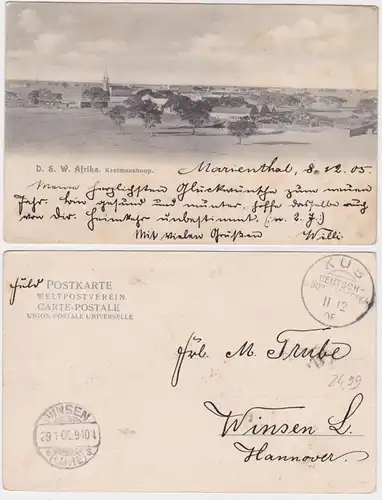 D. S. W. Afrika. Keetmanshoop.
Marienthal, 8.12.05
Meine herzlichsten Glückwünsche zum neuen
Jahr. bin gesund und munter, hoffe dasselbe auch
von Dir. Heimkehr unbestimmt.
Mit vielen Grüßen Willi.
POSTKARTE
WELTPOSTVEREIN
CARTE-POSTALE
UNION POSTALE UNIVERSELLE
KUB
DEUTSCH-
11 12
05
Frl. M. Trube
24,99
WINSEN
Winsen L.
Hannover.